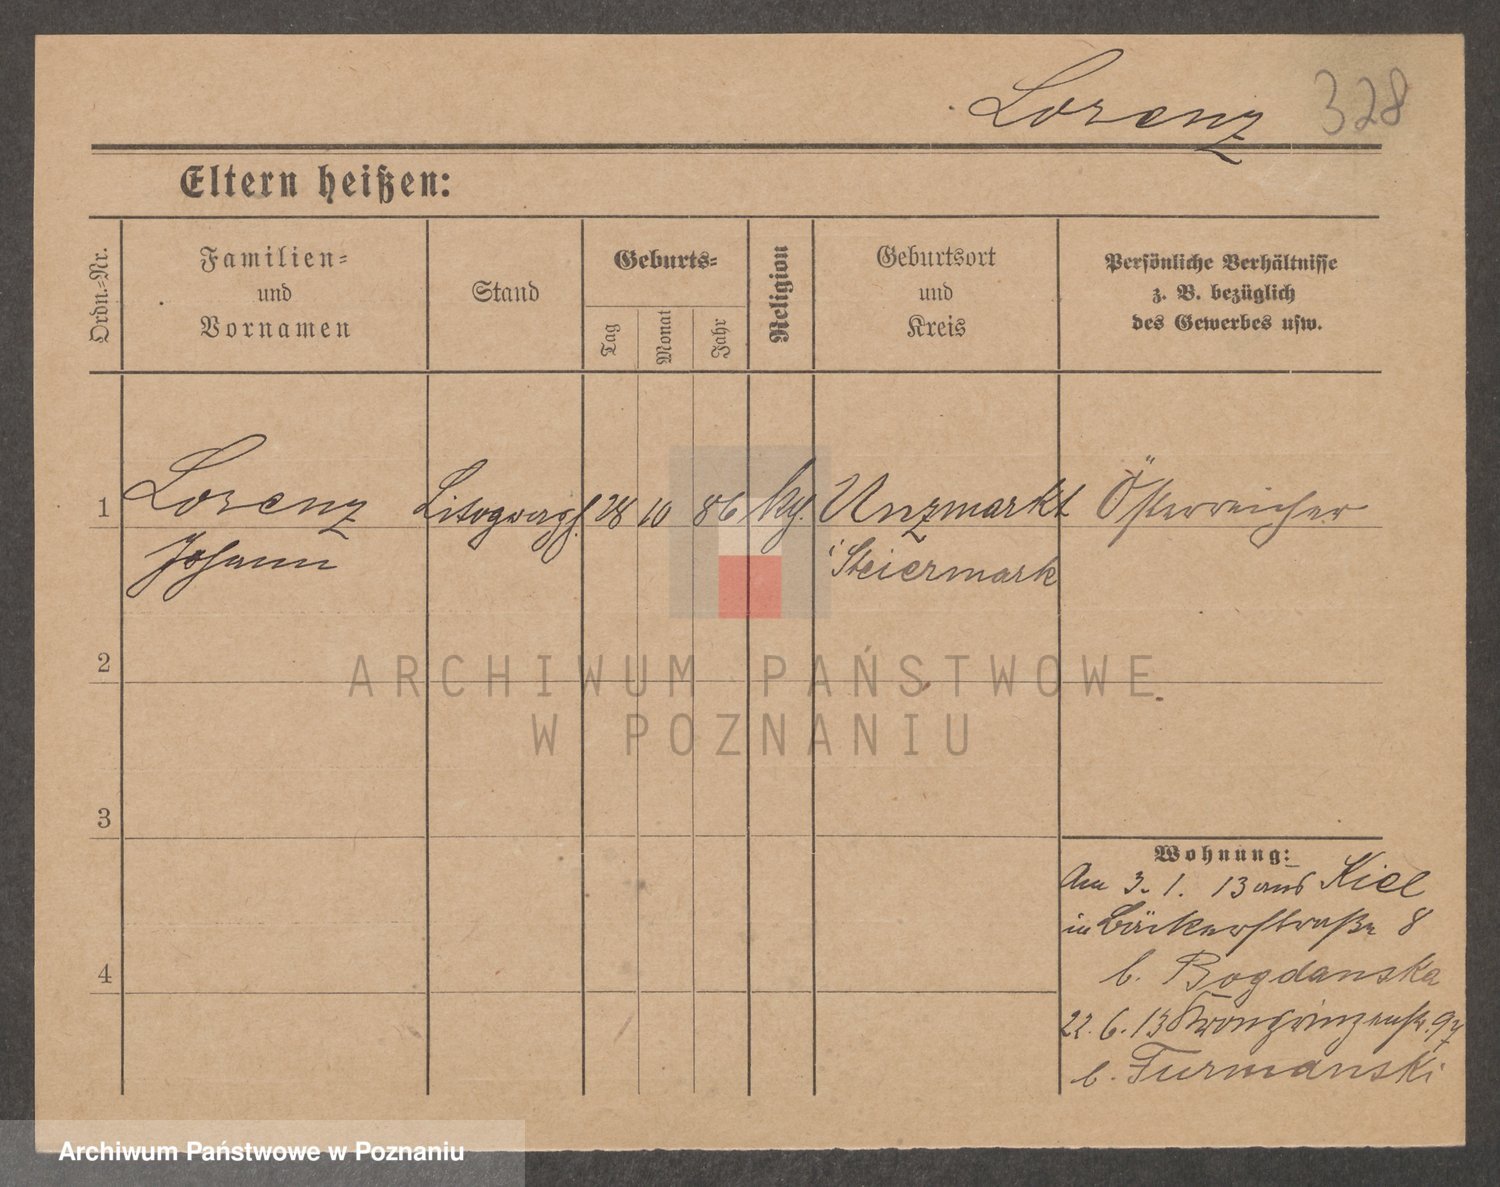 Lorenz 328
Eltern heißen:
Ordn.=Nr.
Familien=
und
Vornamen
Stand
Geburts=
Tag
Monat
Jahr
Religion
Geburtsort
und
Kreis
Persönliche Verhältnisse
z. B. bezüglich
des Gewerbes usw.
1 Lorenz Litogragf. 28 10 86 Unzmarkt Österreicher
Johann i Steiermark
2
ARCHIWUM PAŃSTWOWE
W POZNANIU
3
Wohnung:
Am 3. 1. 13 aus Kiel
in Bäckerstraße 8
b. Bogdanska
4
22. 6. 13 Kronprinzenstr. 97
b. Furmanski
Archiwum Państwowe w Poznaniu